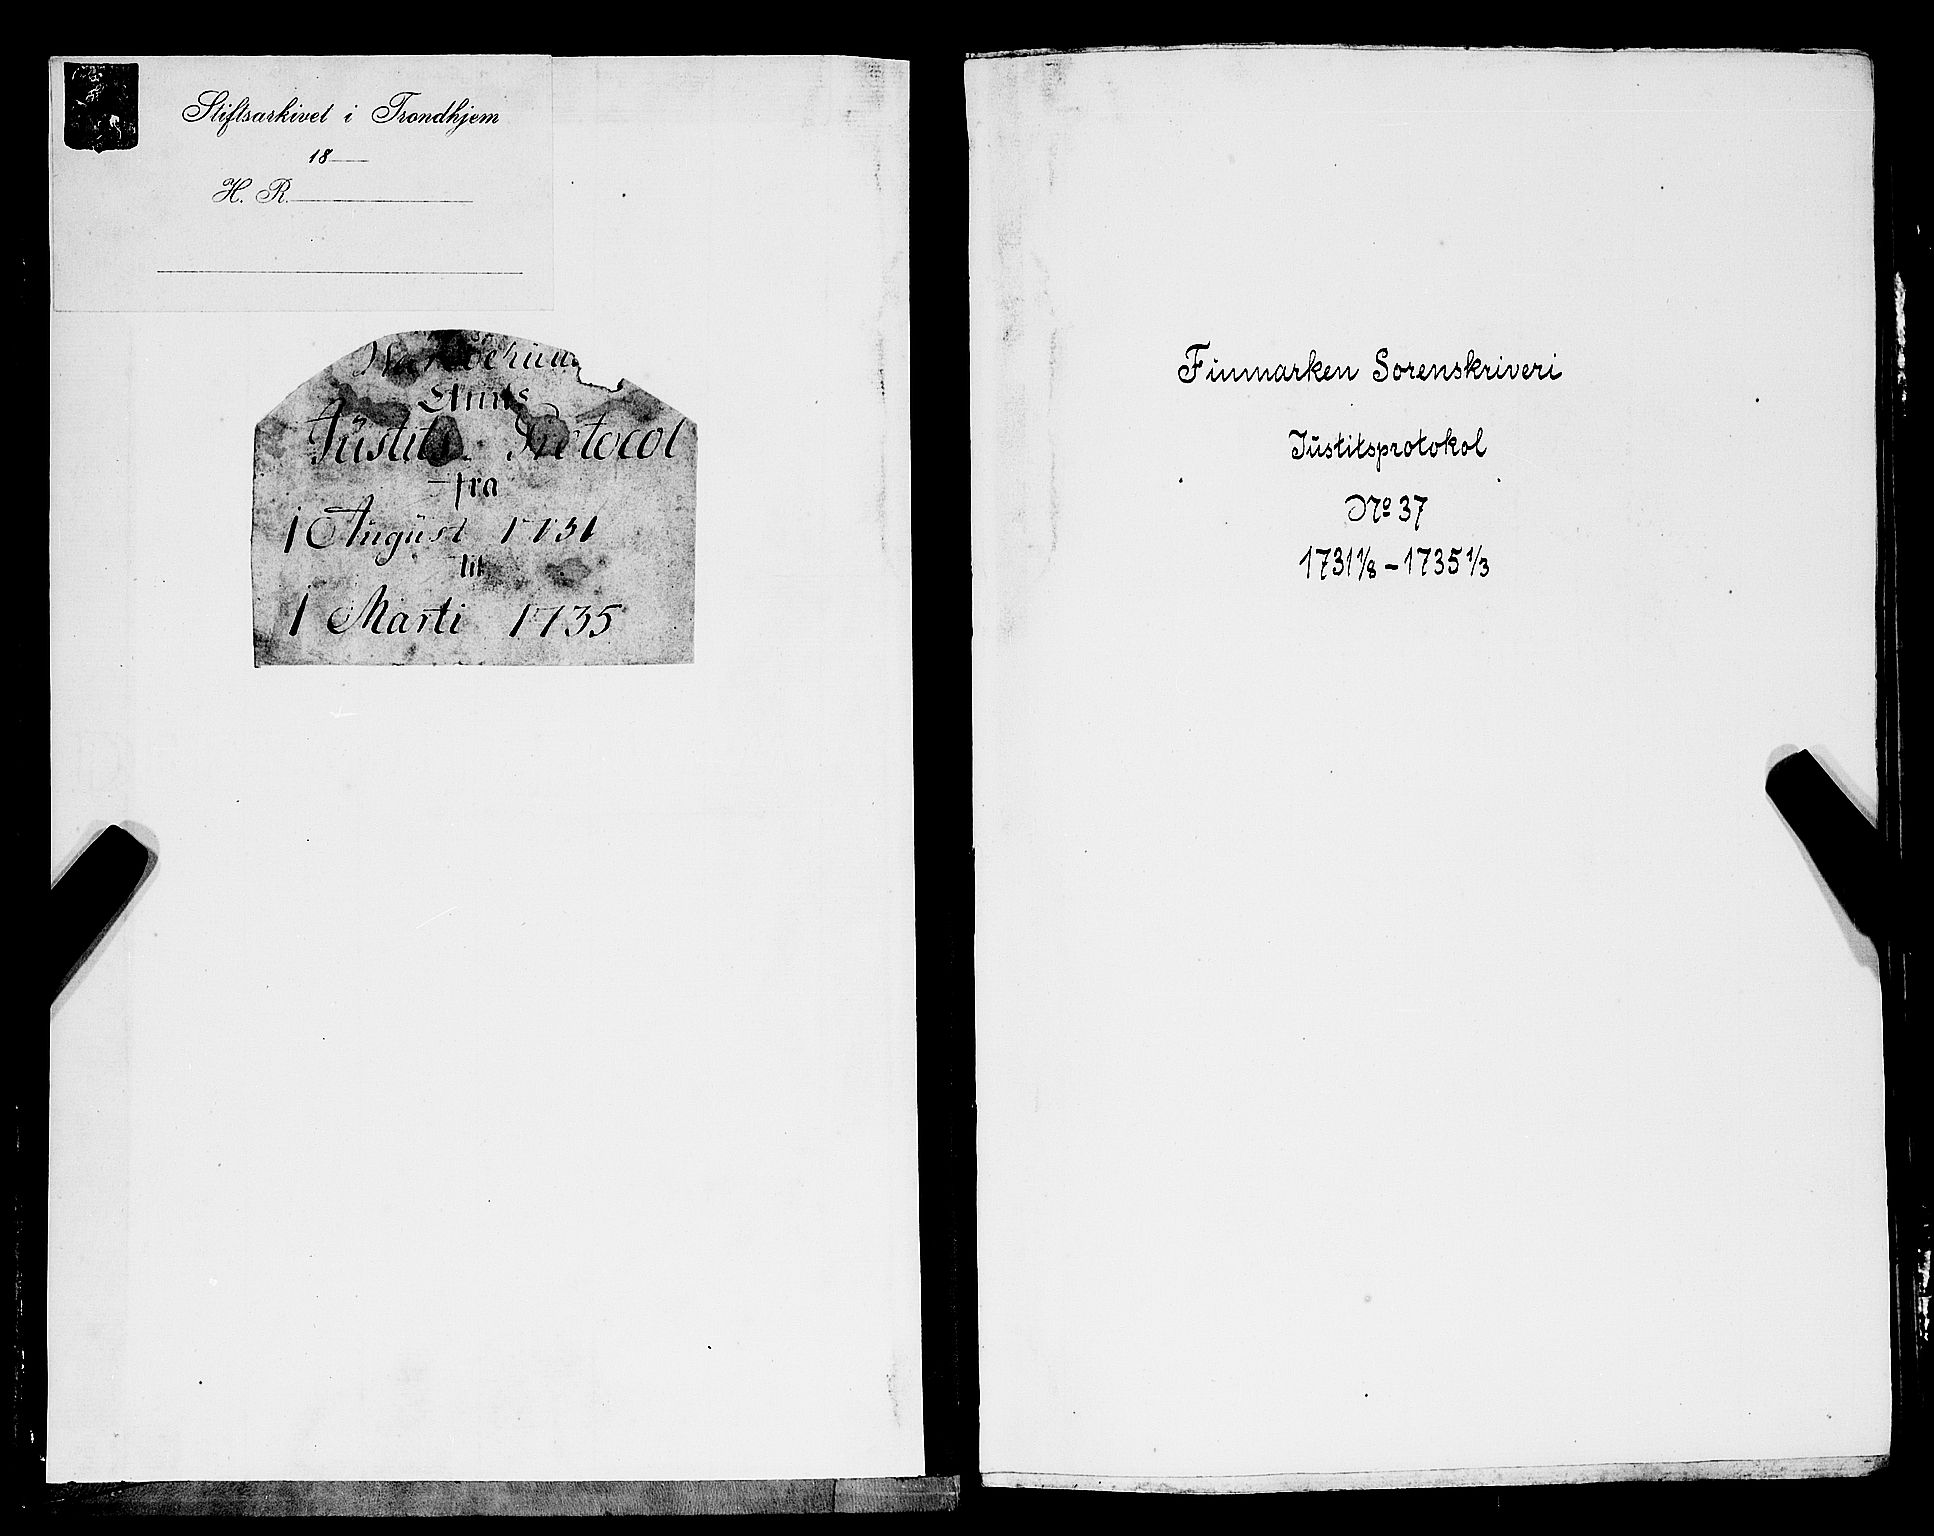 Stiftsarkivet i Trondhjem
18
H. R.
Amts
Justits Protocol
fra
1 August 1731
til
1 Marti 1735
Finmarken Sorenskriveri
Justitsprotokol
No 37
1731 1/8 - 1735 1/3